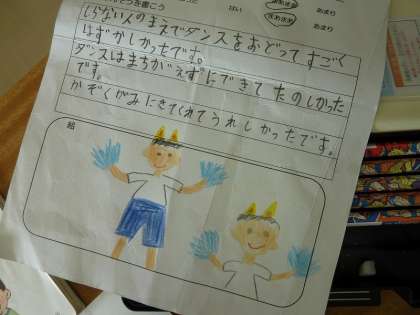 を書こう はい まあまあ あまり
しらない人のまえでダンスをおどってすごく
はずかしかったです。
ダンスはまちがえずにできてたのしかった
です。
かぞくがみにきてくれてうれしかったです。
絵